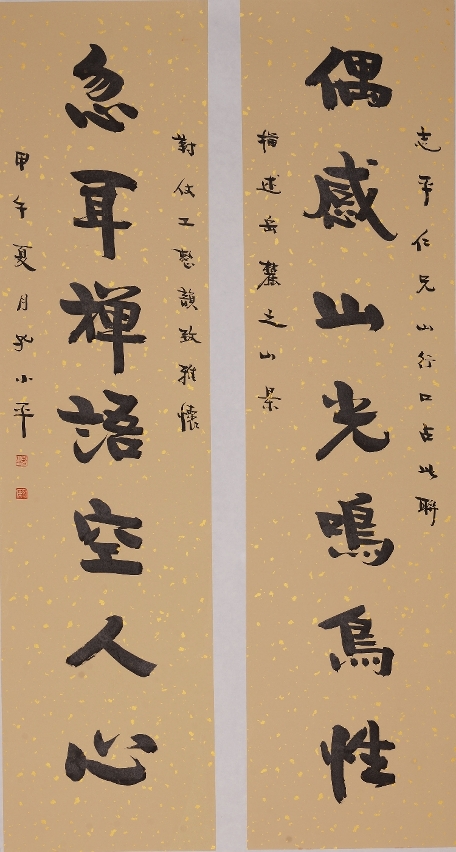 志平仁兄山行口占此聯
偶感山光鳴鳥性
描述岳麓之山景
對仗工整韻致雅懷
忽耳禪語空人心
甲午夏月孔小平